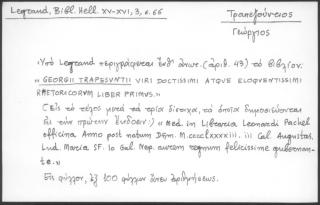 Legrand, Bibl. Hell. XV-XVI, 3, σ. 66
Τραπεζούντιος
Γεώργιος
Ὑπὸ Legrand περιγράφεται ἐνθ' ἀνωτ. (ἀριθ. 43) τὸ βιβλίον.
« GEORGII TRAPESUNTII VIRI DOCTISSIMI ATQVE ELOQVENTISSIMI
RHETORICORVM LIBER PRIMVS. »
(Εἰς τὸ τέλος μετὰ τὰ τρία δίστιχα, τὰ ὁποῖα δημοσιεύονται
εἰς τὴν πρώτην ἔκδοσιν: « Med. in Libraria Leonardi Pachel
officina Anno post natum Dom. M.CCCCLXXXXIII. iii Cal Augustas,
Lud. Maria SF. Io Gal. Nep. aureum regnum felicissime gubernan-
te. »
Εἰς φύλλον, ἐξ 100 φύλλων ἄνευ ἀριθμήσεως.